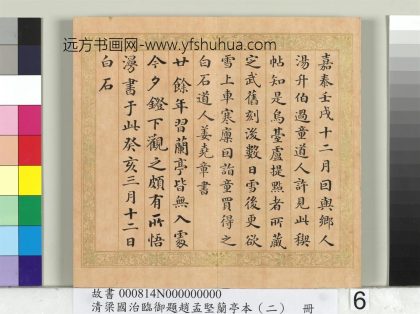 远方书画网-www.yfshuhua.com
嘉泰壬戌十二月因與鄉人
湯升伯過童道人許見此稧
帖知是烏臺盧提㸃者所藏
定武舊刻後數日雪後更欲
雪上車寒凜回詣童買得之
白石道人姜堯章書
廿餘年習蘭亭皆無入處
今夕鐙下觀之頗有所悟
漫書于此癸亥三月十二日
白石
故書 000814N000000000
清梁國治臨御題趙孟堅蘭亭本（二） 冊
6